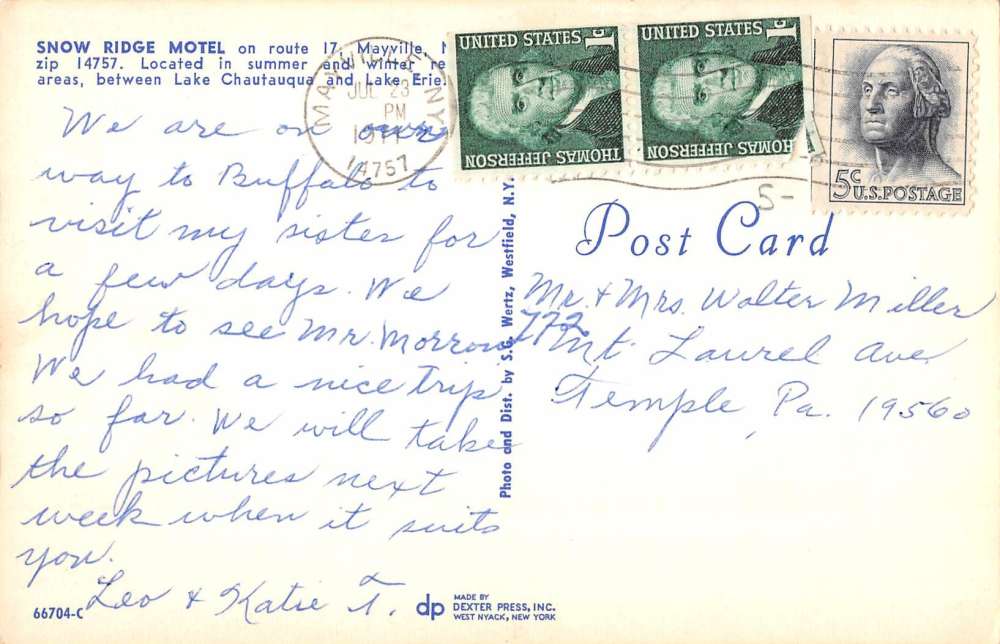 SNOW RIDGE MOTEL on route 17, Mayville, N
zip 14757. Located in summer and winter re
areas, between Lake Chautauqua and Lake Erie.
MAYVILLE NY
JUL 23
PM
14757
UNITED STATES 1c
THOMAS JEFFERSON
UNITED STATES 1c
THOMAS JEFFERSON
5c
U.S. POSTAGE
5-
We are on our
way to Buffalo to
visit my sister for
a few days. We
hope to see Mr. Morrow
We had a nice trip
so far. We will take
the pictures next
week when it suits
you.
Leo & Katie T.
Post Card
Mr. & Mrs. Walter Miller
772 Mt. Laurel Ave
Temple, Pa. 19560
Photo and Dist. by S.G. Wertz, Westfield, N.Y.
66704-C
dp
MADE BY
DEXTER PRESS, INC.
WEST NYACK, NEW YORK